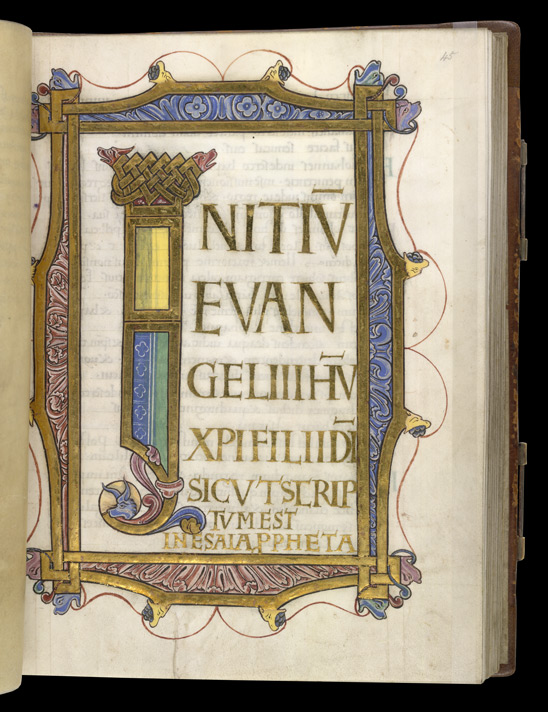 45
INITIŪ
EVAN
GELII IĤV
XPI FILII DĪ
SICVT SCRIP
TVM EST
IN ESAIA PPHETA